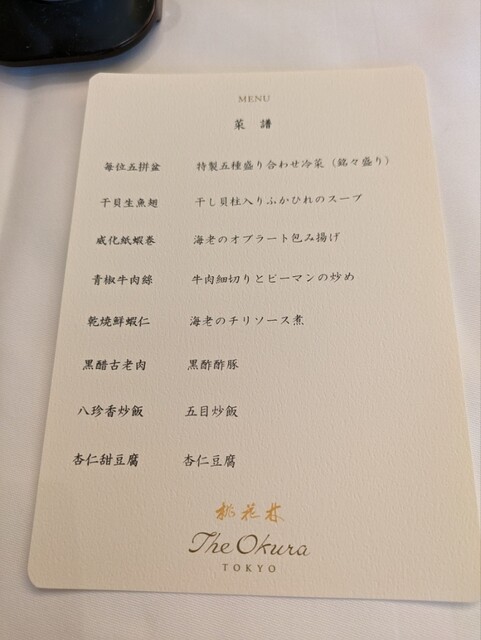 MENU
菜 譜
每位五拼盆 特製五種盛り合わせ冷菜（銘々盛り）
干貝生魚翅 干し貝柱入りふかひれのスープ
威化紙蝦卷 海老のオブラート包み揚げ
青椒牛肉絲 牛肉細切りとピーマンの炒め
乾燒鮮蝦仁 海老のチリソース煮
黒醋古老肉 黒酢酢豚
八珍香炒飯 五目炒飯
杏仁甜豆腐 杏仁豆腐
桃花林
The Okura
TOKYO